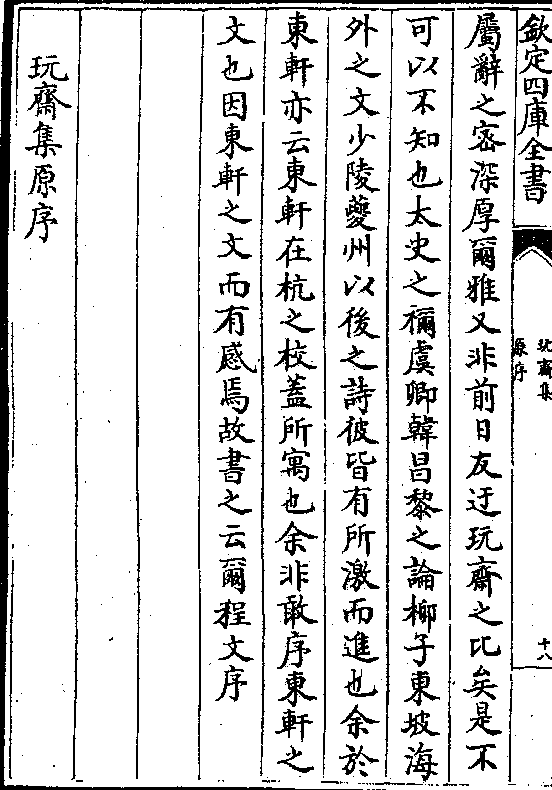 欽定四庫全書
玩齋集
原序
十八
屬辭之宻深厚爾雅又非前日友迂玩齋之比矣是不
可以不知也太史之稱虞卿韓昌黎之論柳子東坡海
外之文少陵夔州以後之詩彼皆有所激而進也余於
東軒亦云東軒在杭之校蓋所寓也余非敢序東軒之
文也因東軒之文而有感焉故書之云爾程文序
玩齋集原序